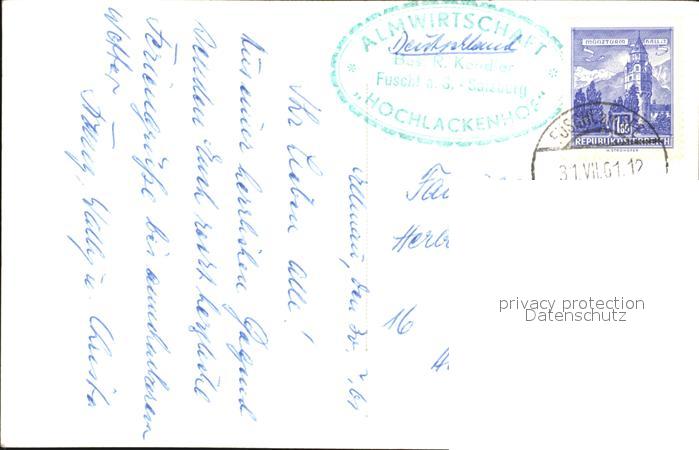 ALMWIRTSCHAFT
Deutschland
Bes. R. Kendler
Fuschl a. S. - Salzburg
"HOCHLACKENHOF"
MÜNZTURM HALL i. T.
1.80
REPUBLIK ÖSTERREICH
31.VII.61.12
den 30. 7. 61
Ihr Lieben alle!
Aus einer herrlichen Gegend
senden Euch recht herzliche
Feriengrüße bei wunderbarem
Wetter
u. Christa
Fa
Herb
16
privacy protection
Datenschutz